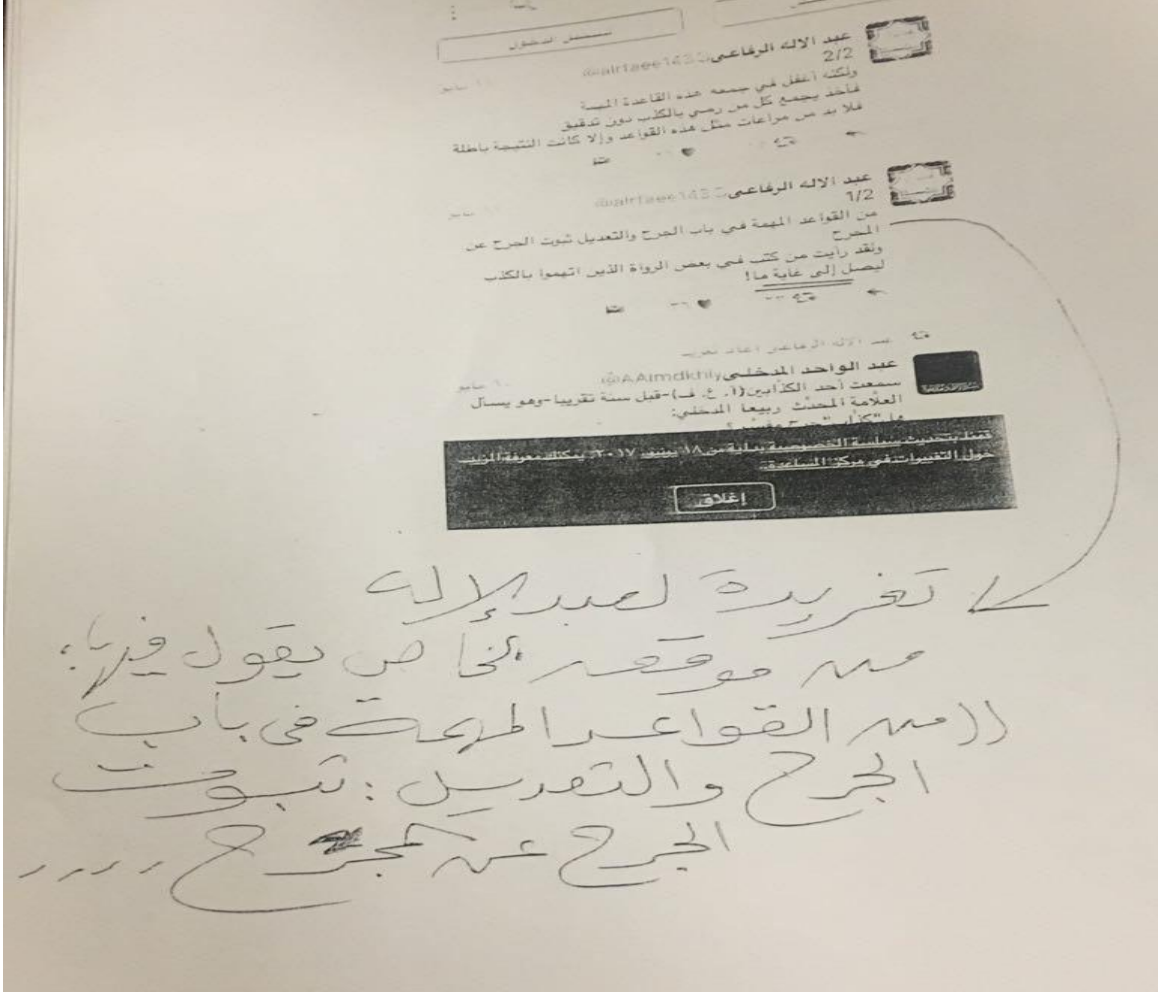 تسجيل الدخول
عبد الاله الرفاعي @alrfaee143
2/2
ولكنه أغفل في جمعه هذه القاعدة المهمة
فأخذ يجمع كل من رمي بالكذب دون تدقيق
فلا بد من مراعات مثل هذه القواعد وإلا كانت النتيجة باطلة
عبد الاله الرفاعي @alrfaee143
1/2
من القواعد المهمة في باب الجرح والتعديل ثبوت الجرح عن
المجرح
ولقد رأيت من كتب في بعض الرواة الذين اتهموا بالكذب
ليصل إلى غاية ما!
عبد الاله الرفاعي أعاد تغريد
عبد الواحد المدخلي @AAlmdkhly ١٠ مايو
سمعت أحد الكذابين (أ. ع. ف)-قبل سنة تقريبا-وهو يسأل
العلامة المحدث ربيعا المدخلي:
قمنا بتحديث سياسة الخصوصية بداية من ١٨ يونيو، ٢٠١٧. يمكنك معرفة المزيد
حول التغييرات في مركز المساعدة.
إغلاق
تغريدة لعبد الإله
من موقعه الخاص يقول فيها:
((من القواعد المهمة في باب
الجرح والتعديل: ثبوت
الجرح عن المجرح ,,,,